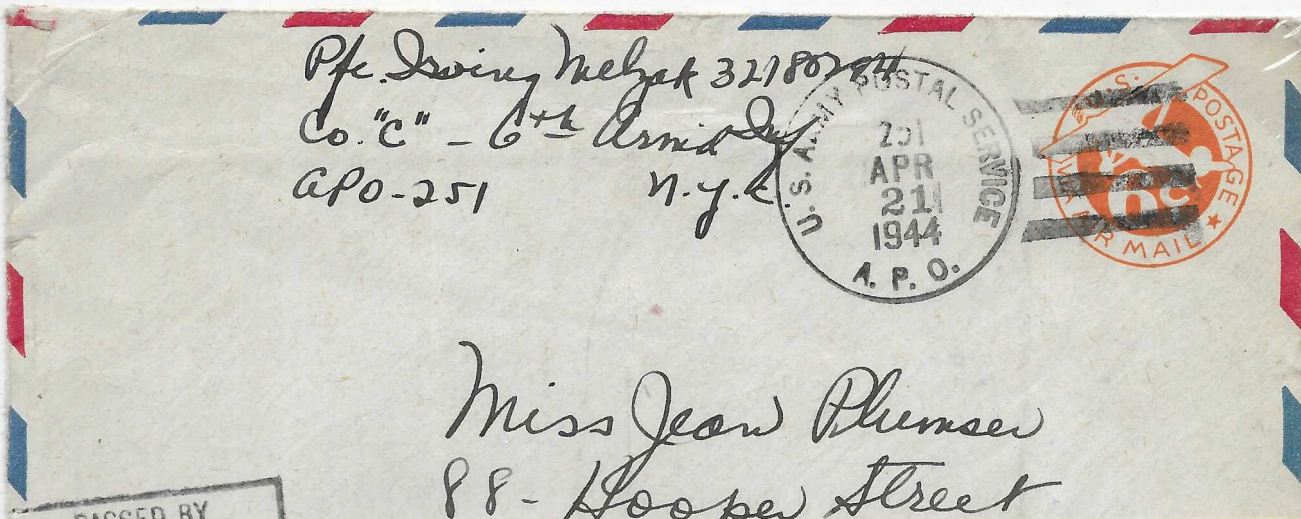 Pfc. Irving Melzak 32180294
Co. "C" - 6th Armd Inf
APO-251 N.Y.C.
U.S. ARMY POSTAL SERVICE
251
APR
21
1944
A. P. O.
U.S. POSTAGE
6c
VIA AIR MAIL
Miss Jean Plumser
88 - Hooper Street
PASSED BY